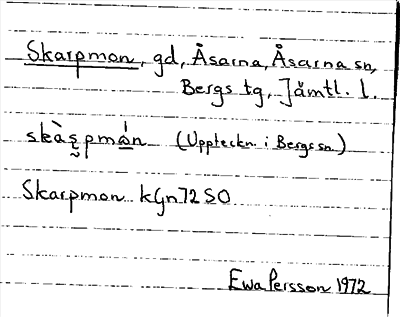 Skarpmon, gd, Åsarna, Åsarna sn,
Bergs tg, Jämtl. l.
skàʂpmán (Uppteckn. i Bergs sn.)
Skarpmon kGn72 SO
Ewa Persson 1972